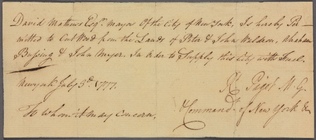 David Mathews Esqr. Mayor Of the City of New York. Is hereby Per
mitted to Cut Wood from the Lands of Peter & John Waldron, Abraham
Bussing & John Myer. In order to Supply this City with Fuel.
New york July 3d. 1777.
Rt. Pigot M. G.
To whom it may Concern,
Command. of New York &